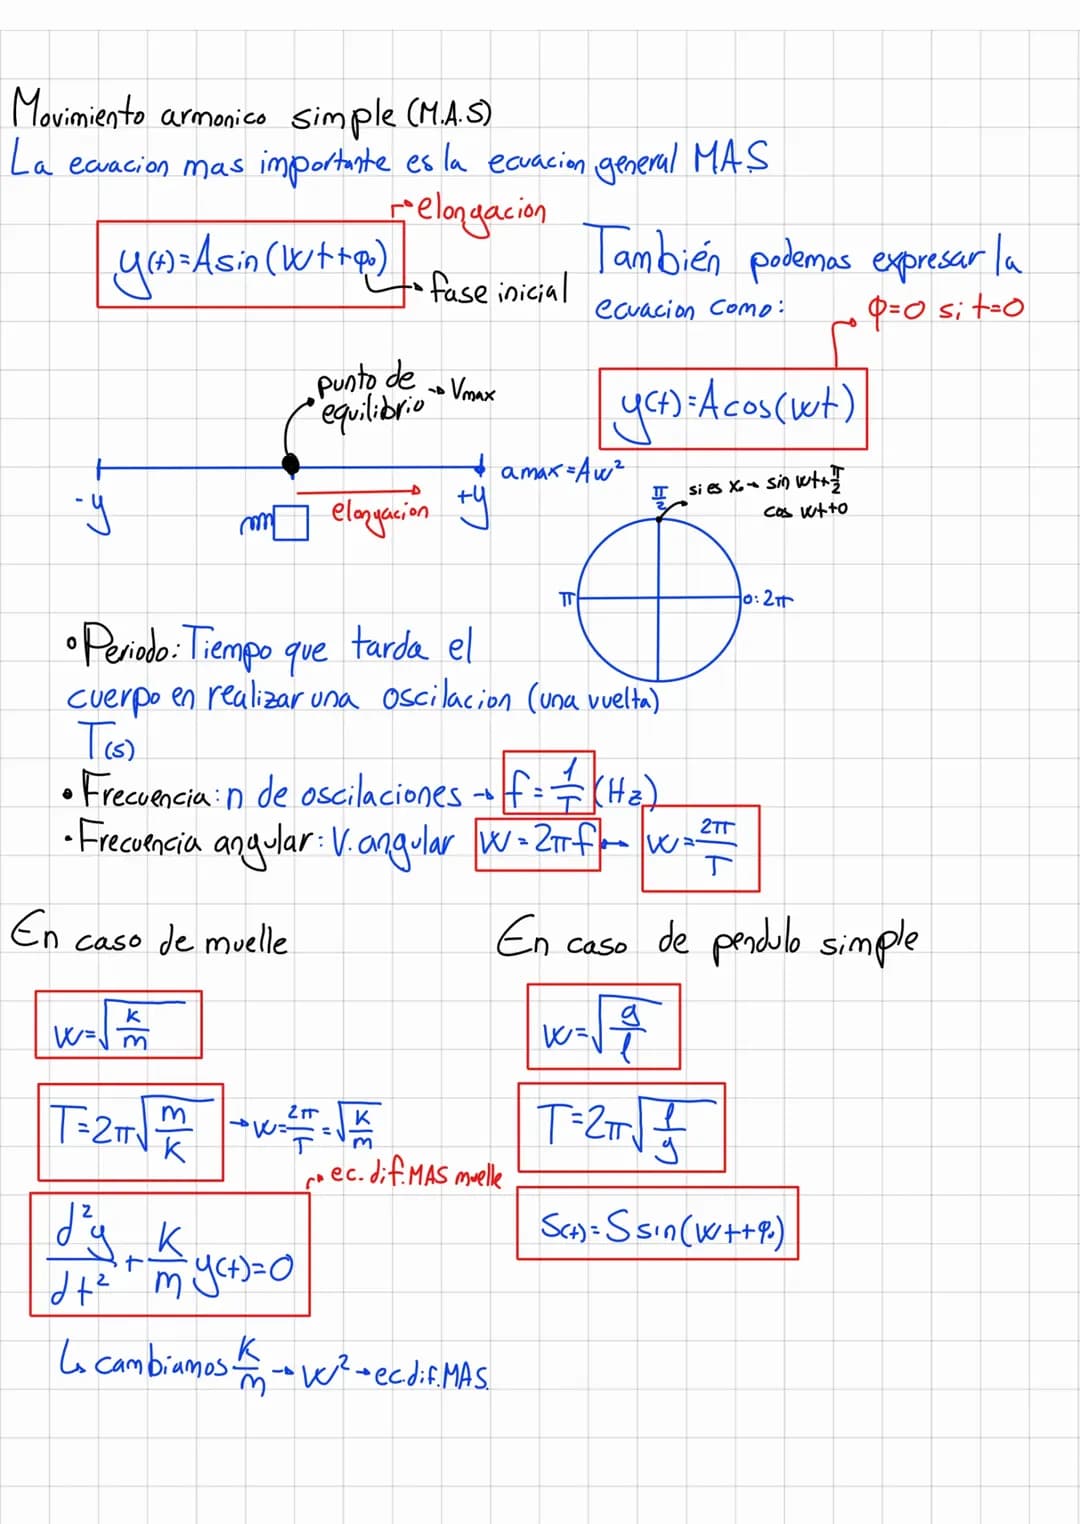 Movimiento armonico simple (M.A.S)
La ecuacion mas importante es la ecuacion general MAS
elongacion
y(t)=Asin(wt+φ₀)
fase inicial
También podemas expresar la
ecuacion como:
φ=0 si t=0
y(t)=Acos(wt)
punto de
equilibrio → Vmax
-y
+y
amax=Aw²
elongacion
m
π/2
si es x₀→ sin wt+π/2
cos wt+0
π
0:2π
• Periodo: Tiempo que tarda el
cuerpo en realizar una oscilacion (una vuelta)
T(s)
• Frecuencia: n de oscilaciones → f=1/T (Hz)
• Frecuencia angular: V. angular w=2πf → w=2π/T
En caso de muelle
w=√(k/m)
T=2π√(m/k) → w=2π/T=√(k/m)
ec. dif. MAS muelle
d²y/dt²+k/m y(t)=0
↳ cambiamos k/m → w² → ec.dif.MAS.
En caso de pendulo simple
w=√(g/l)
T=2π√(l/g)
S(t)=S sin(wt+φ₀)